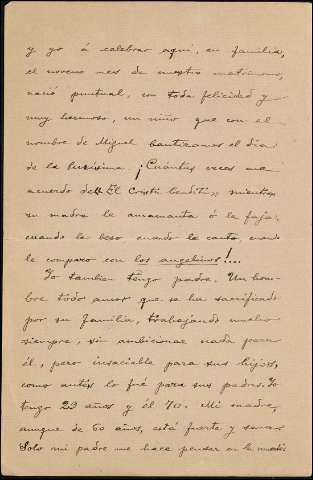 y yo á celebrar aquí, en familia,
el noveno mes de nuestro matrimonio,
nació puntual, con toda felicidad y
muy hermoso, un niño que con el
nombre de Miguel bautizamos el día
de la Purísima. ¡Cuántas veces me
acuerdo de "El Cristu benditu" mientras
su madre le amamanta ó le faja,
cuando le beso cuando le canto, cuando
le comparo con los angelinos!...
Yo tambien tengo padre. Un hom-
bre todo amor que se ha sacrificado
por su familia, trabajando mucho
siempre, sin ambicionar nada para
él, pero insaciable para sus hijos,
como antes lo fué para sus padres. Yo
tengo 29 años y él 70. Mi madre,
aunque de 60 años, está fuerte y sana.
Solo mi padre me hace pensar en la muerte